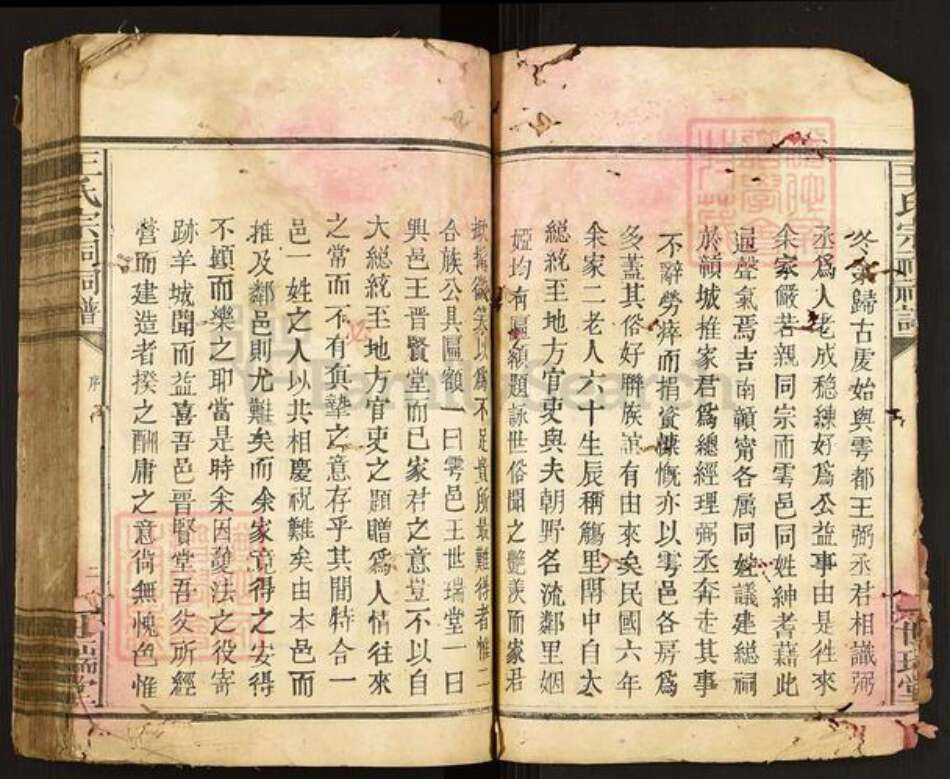 王氏宗祠祠譜
冬余歸古虔始與雩都王弼丞君相識弼
丞爲人老成稳練好爲公益事由是徃來
余家儼若親同宗而雩邑同姓紳耆藉此
通聲氣焉吉南贑甯各属同姓議建総祠
於贑城推家君爲總經理弼丞奔走其事
不辭勞瘁而捐資慷慨亦以雩邑各房爲
多蓋其俗好聯族誼有由來矣民國六年
余家二老人六十生辰稱觴里閈中自大
総統至地方官吏與夫朝野名流鄰里姻
婭均有匾額題詠世俗聞之艷羡而家君
掀髯微笑以爲不足貴所最難得者惟二
合族公具匾額一曰雩邑王世瑞堂一曰
興邑王晋賢堂而已家君之意豈不以自
大総統至地方官吏之題贈爲人情往來
之常而不有真摯之意存乎其間特合一
邑一姓之人以共相慶祝難矣由本邑而
推及鄰邑則尤難矣而余家竟得之安得
不顧而樂之耶當是時余因護法之役寄
跡羊城聞而益喜吾邑晋賢堂吾父所經
營而建造者揆之酬庸之意尙無愧色惟
王氏宗祠祠譜
序
二
世瑞堂